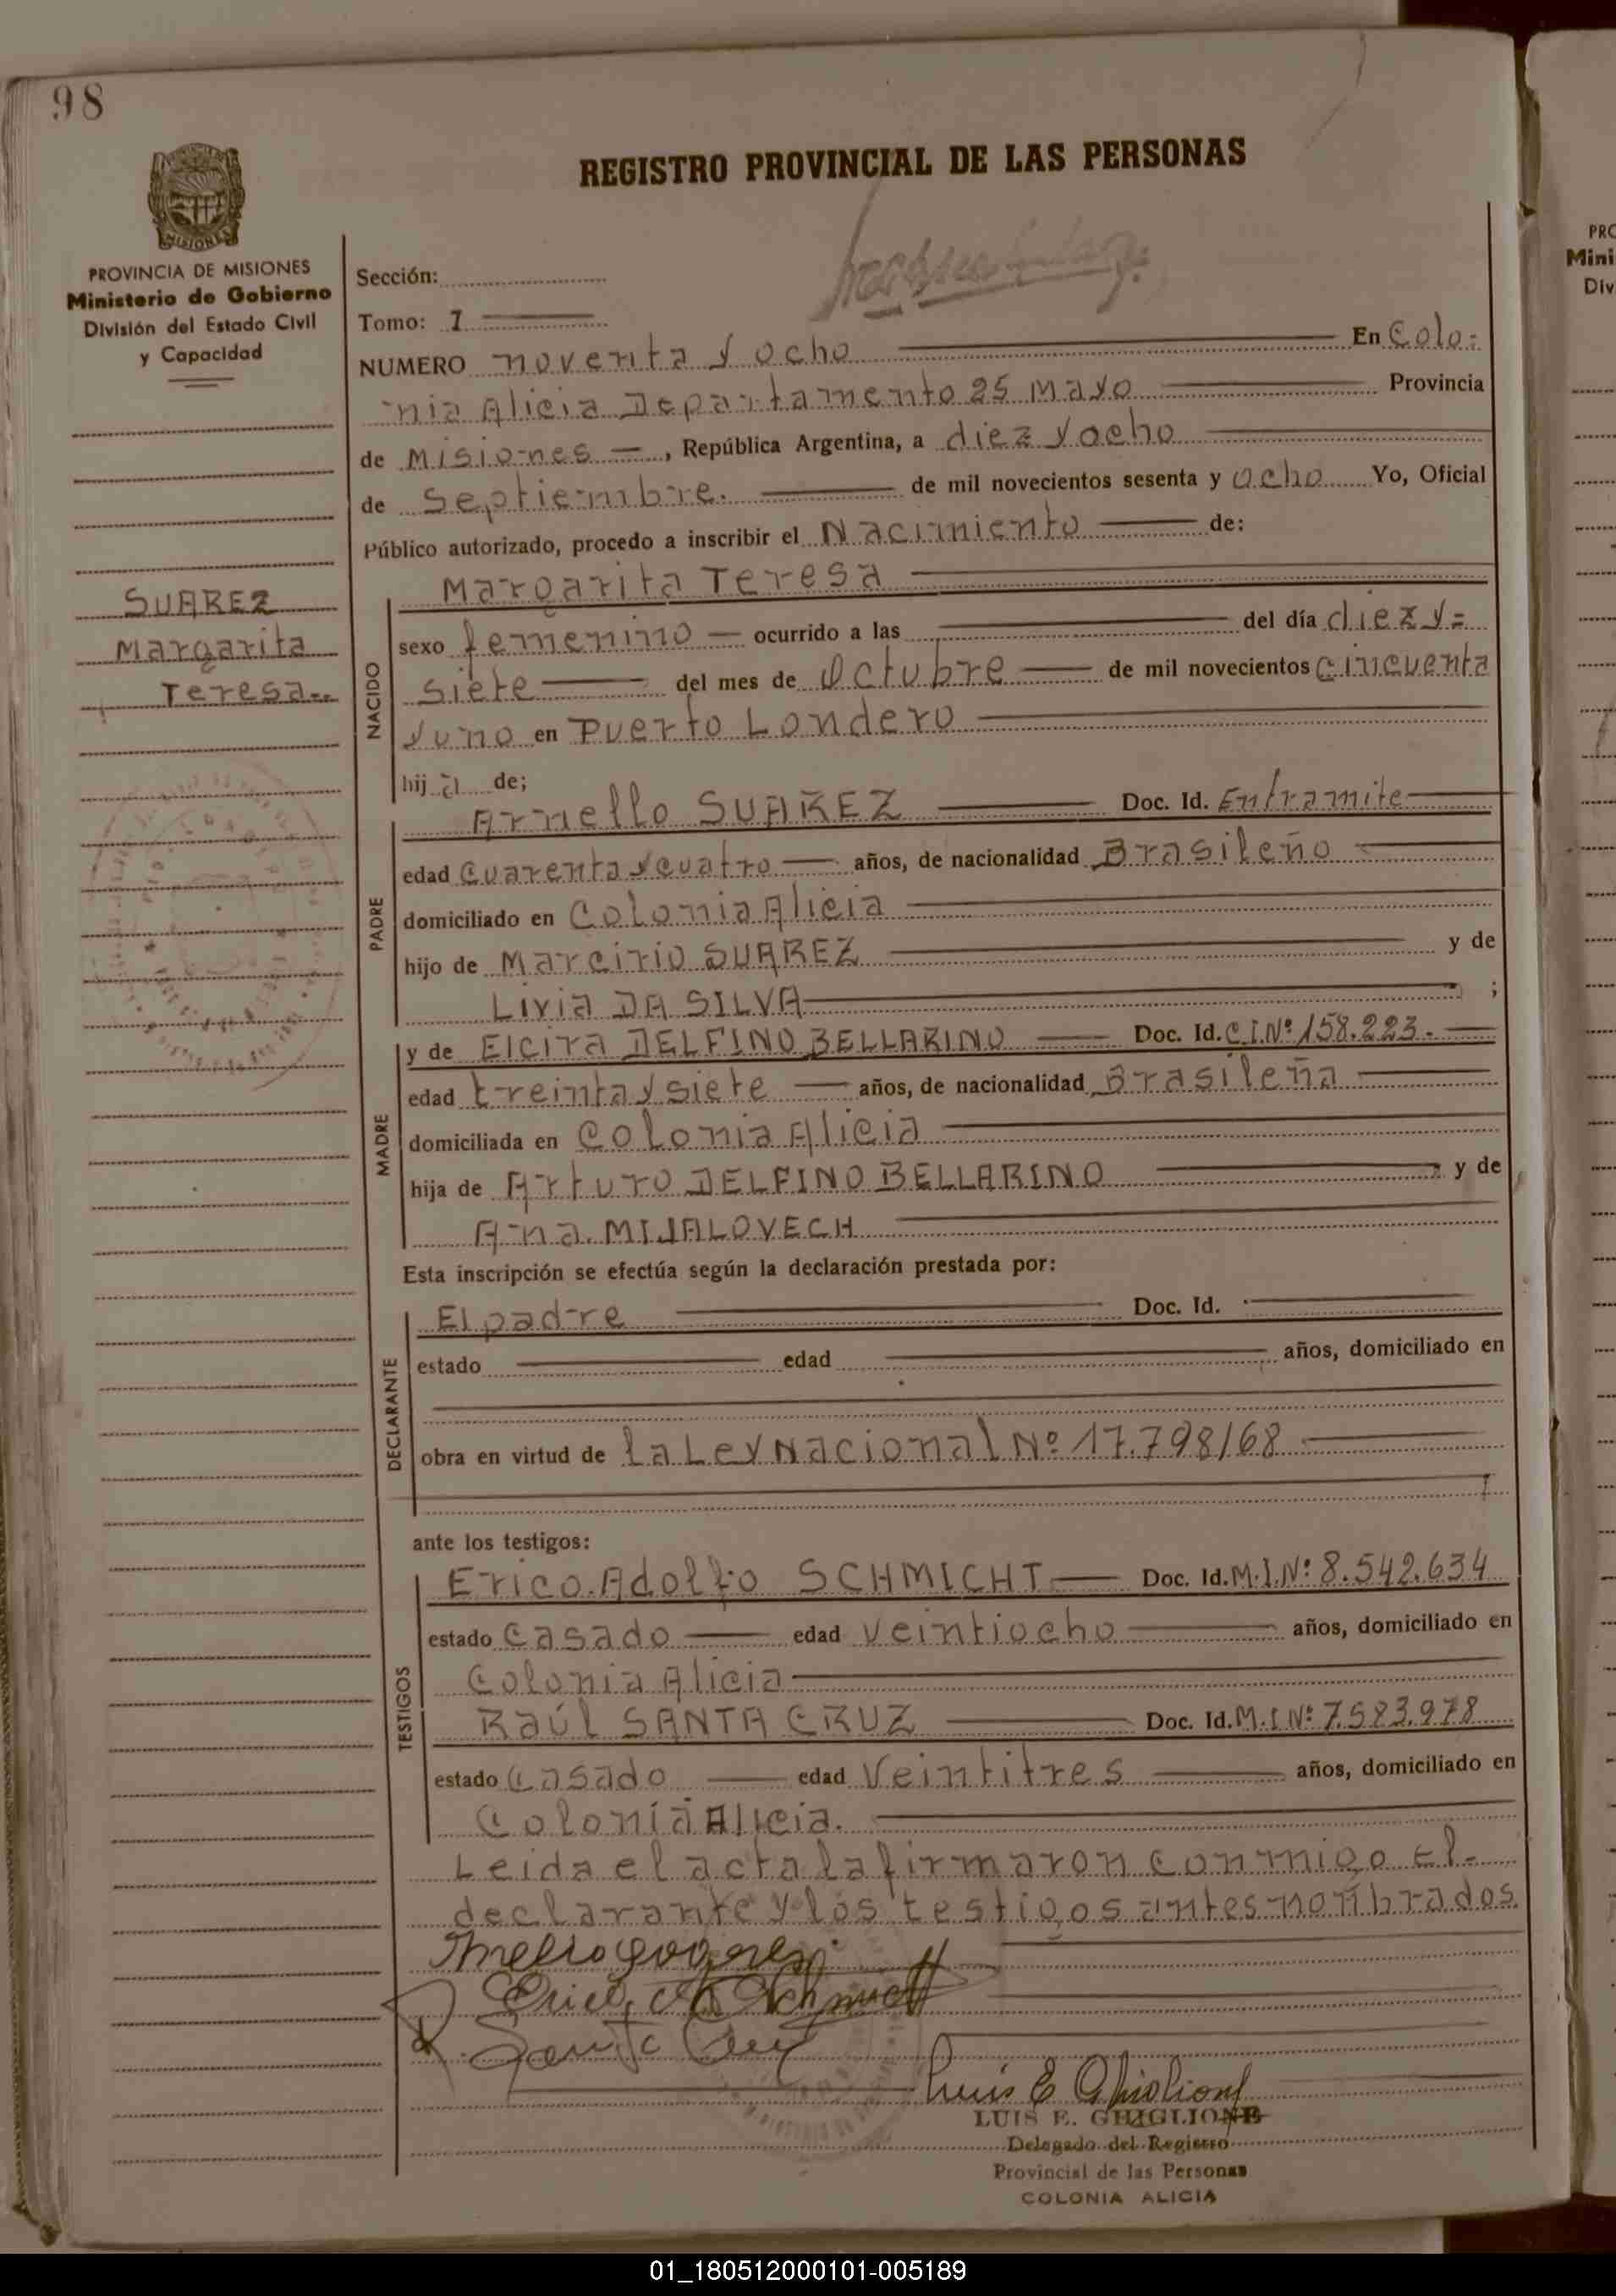 98
REGISTRO PROVINCIAL DE LAS PERSONAS
MISIONES
PROVINCIA DE MISIONES
Ministerio de Gobierno
División del Estado Civil
y Capacidad
SUAREZ
Margarita
Teresa
Sección:
Tomo: 1
NUMERO noventa y ocho En Colo-
nia Alicia Departamento 25 Mayo Provincia
de Misiones, República Argentina, a diez y ocho
de Septiembre. de mil novecientos sesenta y ocho Yo, Oficial
Público autorizado, procedo a inscribir el Nacimiento de:
NACIDO
Margarita Teresa
sexo femenino ocurrido a las del día diez y=
siete del mes de Octubre de mil novecientos cincuenta
y uno en Puerto Londero
hija de;
PADRE
Arnello SUAREZ Doc. Id. Entramite
edad cuarenta y cuatro años, de nacionalidad Brasileño
domiciliado en Colonia Alicia
hijo de Marcirio SUAREZ y de
Livia DA SILVA ;
MADRE
y de Elcira DELFINO BELLARINO Doc. Id. C.I.Nº 158.223.
edad treinta y siete años, de nacionalidad Brasileña
domiciliada en Colonia Alicia
hija de Arturo DELFINO BELLARINO y de
Ana. MIJALOVECH
Esta inscripción se efectúa según la declaración prestada por:
DECLARANTE
El padre Doc. Id.
estado edad años, domiciliado en
obra en virtud de la Ley Nacional Nº 17.798/68
ante los testigos:
TESTIGOS
Erico Adolfo SCHMICHT Doc. Id. M.I.Nº 8.542.634
estado casado edad veintiocho años, domiciliado en
Colonia Alicia
Raúl SANTA CRUZ Doc. Id. M.I.Nº 7.583.978
estado casado edad veintitres años, domiciliado en
Colonia Alicia.
Leida el acta la firmaron conmigo el-
declarante y los testigos antes nombrados
R. Santa Cruz
Luis E Ghiglione
LUIS E. GHIGLIONE
Delegado del Registro
Provincial de las Personas
COLONIA ALICIA
PRO
Mini
Div
01_180512000101-005189